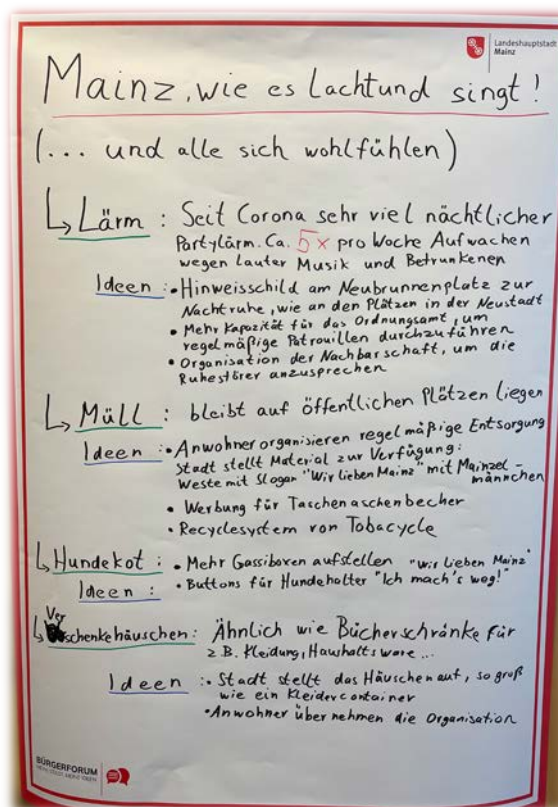 Landeshauptstadt
Mainz
Mainz, wie es lacht und singt!
(... und alle sich wohlfühlen)
↳ Lärm : Seit Corona sehr viel nächtlicher
Partylärm. Ca. 5x pro Woche Aufwachen
wegen lauter Musik und Betrunkenen
Ideen : • Hinweisschild am Neubrunnenplatz zur
Nachtruhe, wie an den Plätzen in der Neustadt
• Mehr Kapazität für das Ordnungsamt, um
regelmäßige Patrouillen durchzuführen
• Organisation der Nachbarschaft, um die
Ruhestörer anzusprechen
↳ Müll : bleibt auf öffentlichen Plätzen liegen
Ideen : • Anwohner organisieren regelmäßige Entsorgung
Stadt stellt Material zur Verfügung:
Weste mit Slogan "Wir lieben Mainz" mit Mainzel-
männchen
• Werbung für Taschenaschenbecher
• Recyclesystem von Tobacycle
↳ Hundekot : • Mehr Gassiboxen aufstellen "Wir lieben Mainz"
Ideen : • Buttons für Hundehalter "Ich mach's weg!"
↳ Verschenkehäuschen: Ähnlich wie Bücherschränke für
z B. Kleidung, Haushaltsware ...
Ideen : • Stadt stellt das Häuschen auf, so groß
wie ein Kleidercontainer
• Anwohner übernehmen die Organisation
BÜRGERFORUM